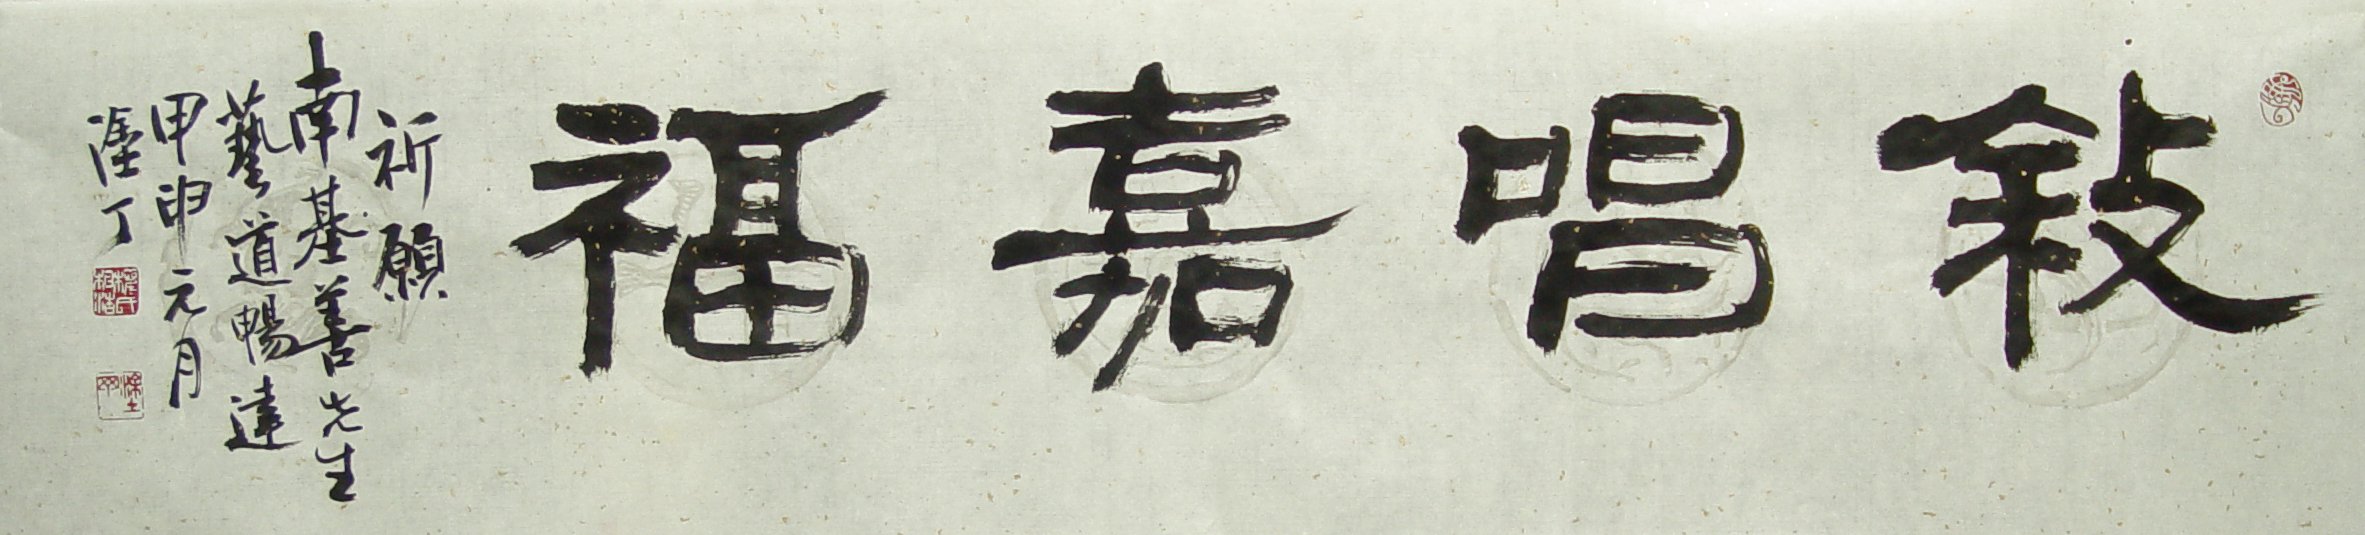 敍唱嘉福
祈願
南基善先生
藝道暢達
甲申元月
丁